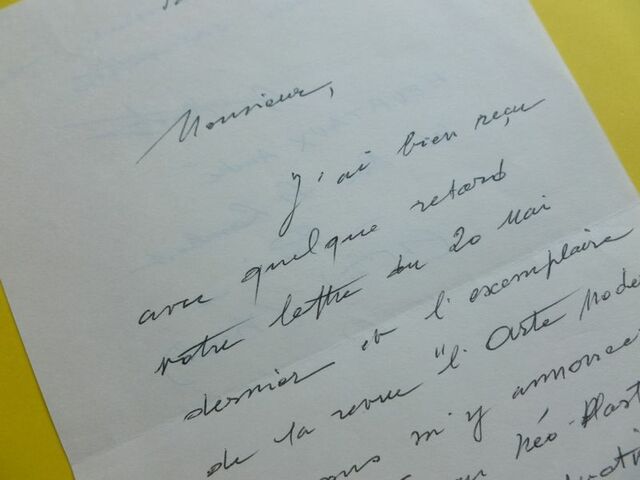 Monsieur,
J'ai bien reçu
avec quelque retard
votre lettre du 20 Mai
dernier et l'exemplaire
de la revue "l'Arte Mode
m'y annoncez
Néo-Plast